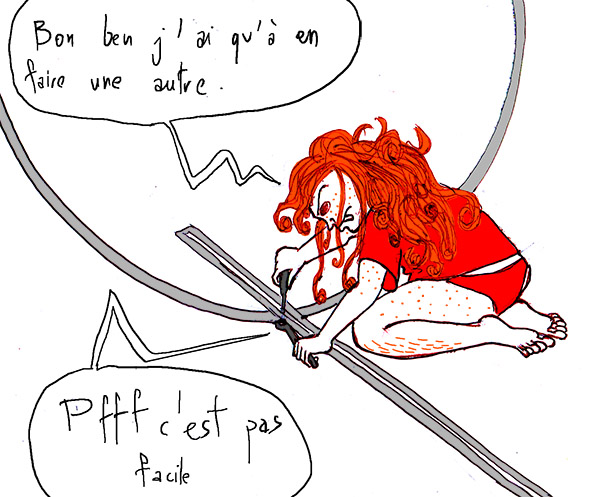 Bon ben j'ai qu'à en
faire une autre.
Pfff c'est pas
facile